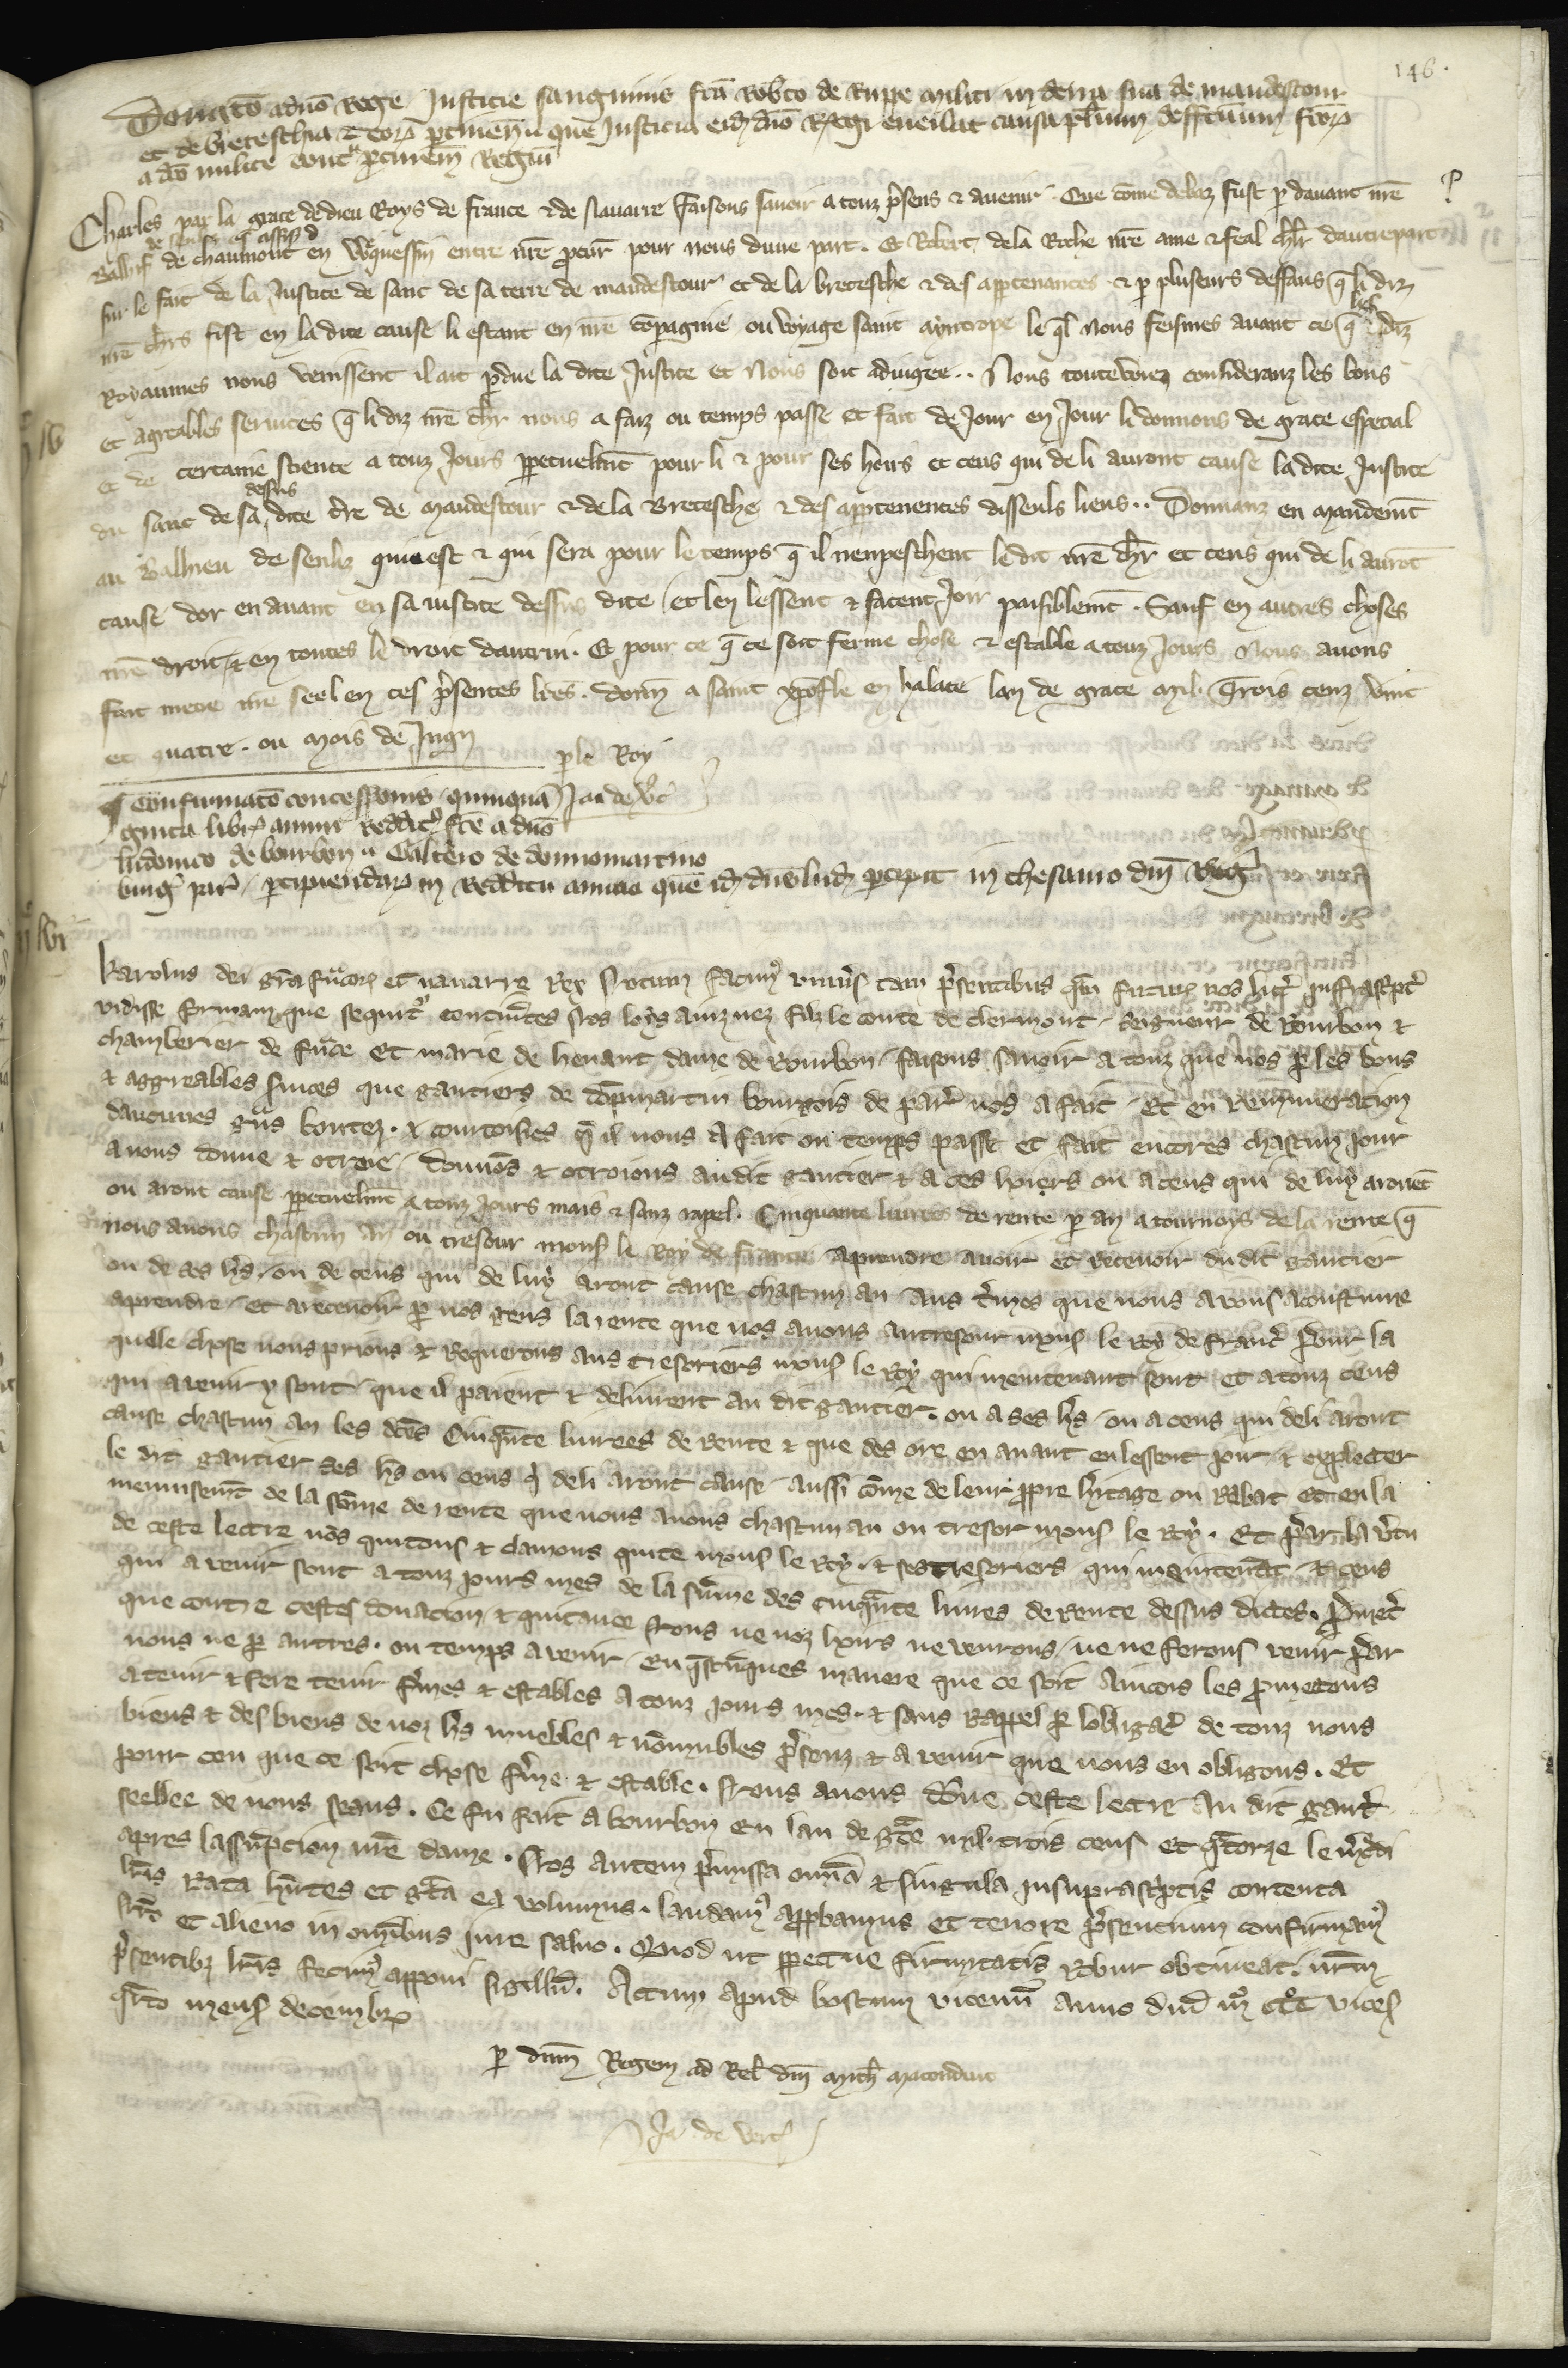 146.
Donatō a dnō Rege Justicie sanguinis fcā Robto de Rupe militi in terra sua de maudestour
et de bretescha et eorō ꝑtinen que Justicia eidꝫ dnō Regi eveniat causa plurium deffectuum fcōrꝫ
a dcō milite contᵃ ꝑcurem Regiū
Charles par la grace de dieu Roys de france et de Navarre faisons savoir a touz pͬsens et avenir. Que cōme debaz fust ꝑ davant nrē
de senliz es assisꝫ d
Ballif de chaumont en Wͥquessin entre nrē ꝓcur pour nous dune part. Et Robert de la Roche nrē ame et feal chlr dautrepart
sur le fait de la Justice de sanc de sa terre de maudestour et de la bretesche et des appartenances et ꝑ pluseurs deffaus q̄ li diz
nrē chrs fist en la dite cause li estant en nrē cōpagnie ou voyage saint antrope le ql nous feismes avant ce q̄ les diz
Royaumes nous venissent il ait ꝑdue la dite Justice et Nous soit adiugee.. Nous toutevoies consideranz les bons
et agreables services q̄ li diz nrē chr nous a faiz ou temps passe et fait de Jour en Jour li donnons de grace especial
et de certaine science a touz Jours ꝑpetuelmt pour li et pour ses hoirs et ceus qui de li auront cause la dite Justice
du sanc de sa dessus dite tre de maudestour et de la Bretesche et des aptenences disseuls lieus.. Donnanz en mandemt
au Ballieu de senliz qui est et qui sera pour le temps q̄ il nenpeschent le dit nrē chr et ceus qui de li aurōt
cause dor en avant en sa iustice dessus dite et len lessent et facent Joir paisiblemt. Sauf en autres choses
nrē droit et en toutes le droit dautrui. Et pour ce q̄ ce soit ferme chose et estable a touz Jours Nous avons
fait metre nrē seel en ces pͬsentes lres. donn a saint xpōfle en halate lan de grace mil. Trois cenz vint
et quatre. ou mois de Jugn
ꝑ le Roy
Confirmatō concessionis quinquā Jac de vc
ginta libr annui Reddit fcē a dnō
ludovico de bourbon Galtero de donnomartino
burg par ꝑcipiendarꝫ in Redditu annuo quē idꝫ dns lud ꝑcipit in thesauro dnī Reg
Karolus dei grā francorꝫ et navarre Rex Notum facimꝰ universis tam pͬsentibus qm futuris nos litꝰ infrascptꝰ
vidisse formam que sequitꝰ continētes Nos loys ainznez filz le conte de clermont seigneur de Bourbon et
chamberier de frāce Et marie de henaut dame de Bourbon faisons savoir a touz que nos ꝑ les bons
et aggreables services que gautiers de dōpmartin bourgois de parͥ nos a fait Et en Remuneracion
daucunes grās bontez. et courtoisies q̄ il nous a fait ou temps passe et fait encores chascun jour
avons donne et otroie donnōs et otroions audit gautier et a ces hoiers ou a ceus qui de luy aront
ou aront cause ꝑpetuelmt a touz Jours mais et sanz rapel. Cinquante livres de rente ꝑ an a tournoys de la rente q̄
nous avons chascun an ou tresour mons le Roy de france aprendre avoir et recevoir dudit gautier
ou de ses hs. ou de ceus qui de luy aront cause chascun an aus tͬmes que nous avons acoustume
aprendre et arecevoir ꝑ nos gens la rente que nos avons au tresour mons le Roy de franc Pour la
quelle chose nous prions et Requerons aus tresoriers mons le Roy qui meintenant sont et a touz ceus
qui avenir y sont que il paient et delivrent au dit gautier. ou a ses hs ou a ceus qui deli aront
cause chascun an les dctēs cinquāte livrees de rente et que des ore en avant en lessent joir et explecter
le dit gautier ses hs ou ceus q̄ deli aront cause aussi cōme de leur ꝓpre hͥitage ou Rebat et en la
menuisemt de la sōme de rente que nous avons chascun an ou tresor mons le Roy. Et par la vͬtu
de ceste lectre nōs quitons et clamons quite mons le Roy. et ses tresoriers qui meintenāt et ceus
qui avenir sont a touz jours mes de la sūme des cinquāte livres de rente dessus dictes. Pͬmet
que contre cestes donacion et quitance nons ne noz hoirs ne venrons ne ne ferons venir par
nous ne ꝑ autres. ou temps avenir En quelcūques maniere que ce soit Aincois les ꝓmetons
atenir et fere tenir fͬmes et estables a touz jours mes. et sans Rappel ꝑ lobligac de touz nous
biens et des biens de noz hs muebles et nōmubles pͬsenz et avenir que nous en obligons. Et
pour ceu que ce soit chose fͬme et estable. Nous avons dōne ceste lectre au dit gautͥ
seellee de nous seaus. Ce fu fait a bourbon En lan de gce mil. trois cens et qͣtorze le mͬcdi
apres lassūpcion nrē dame. Nos autem pͬmissa omīa et singula insuprascptis contenta
lrīs Rata hntes et gta ea volumus. laudamꝰ approbamus et tenore pͬsencium confirmamꝰ
nrō et alieno in omibus jure salvo. Quod ut ꝑpetue firmitatis robur obtineat. nrm
pͬsentibꝫ lrīs fecimꝰ apponi sigillū. Actum apud boscum vicenn Anno dnī mͦ cccͦ vices
qͣrto mense decembrꝫ
ꝑ dnm Regem ad Rel dnī mich maconduit
Ja de verc